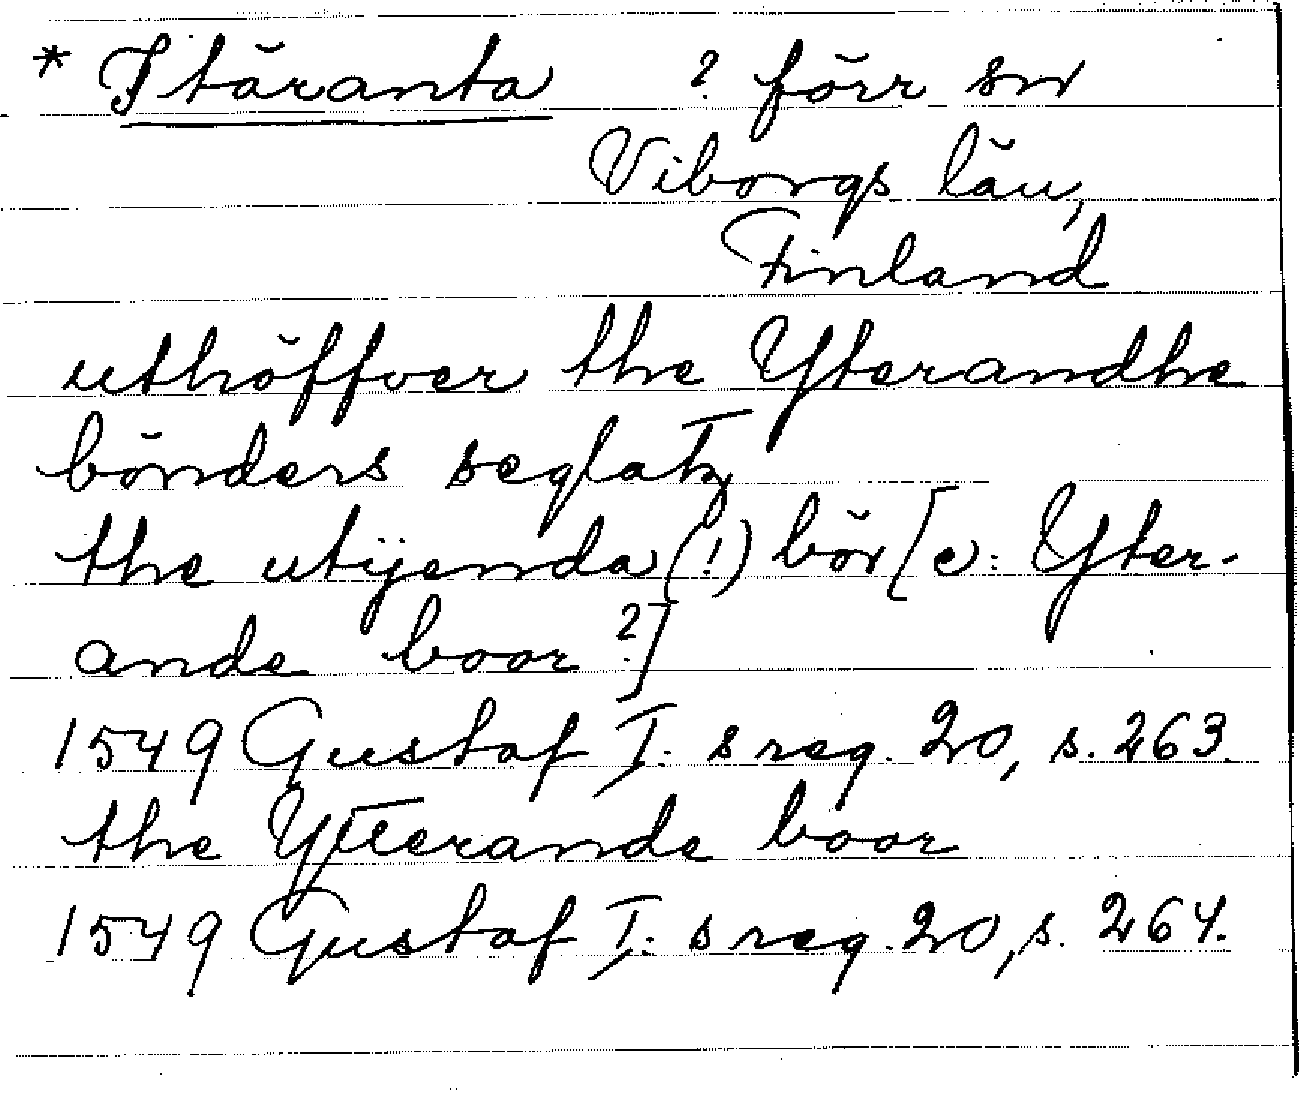 * Itäranta ? förr sn
Viborgs län,
Finland
uthöffver the Yterandhe
bönders seglatz
the utijenda (!) bör [ɔ: Yter-
ande boor ?]
1549 Gustaf I:s reg. 20, s. 263.
the Ytterande boor
1549 Gustaf I:s reg. 20, s. 264.